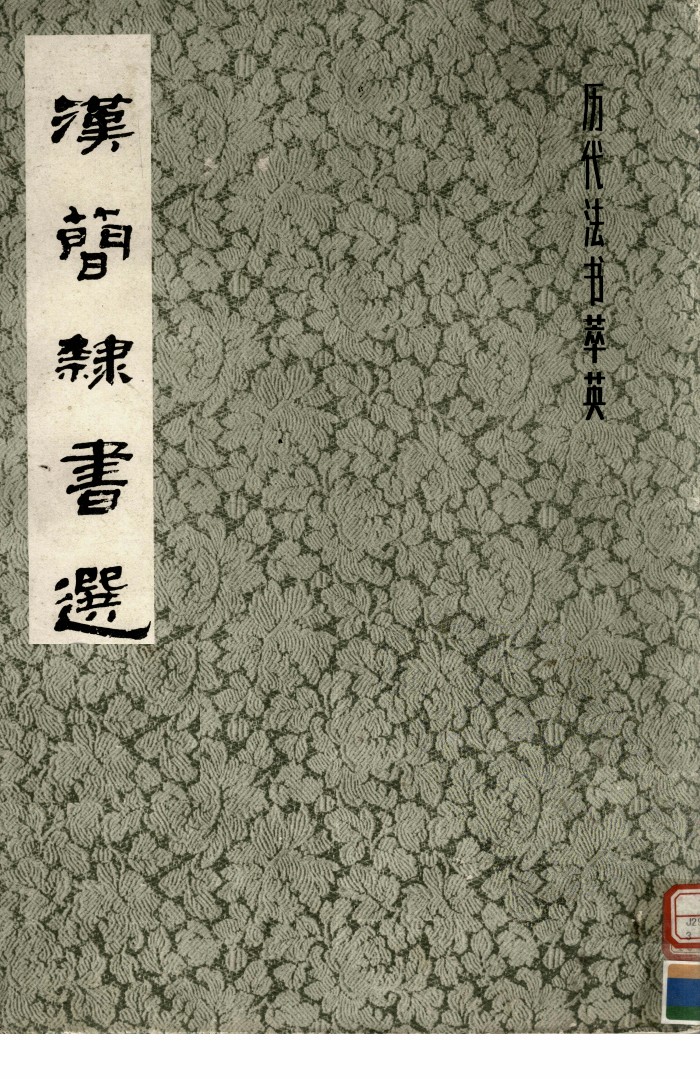 历代法书萃英
漢簡隸書選
J29
3